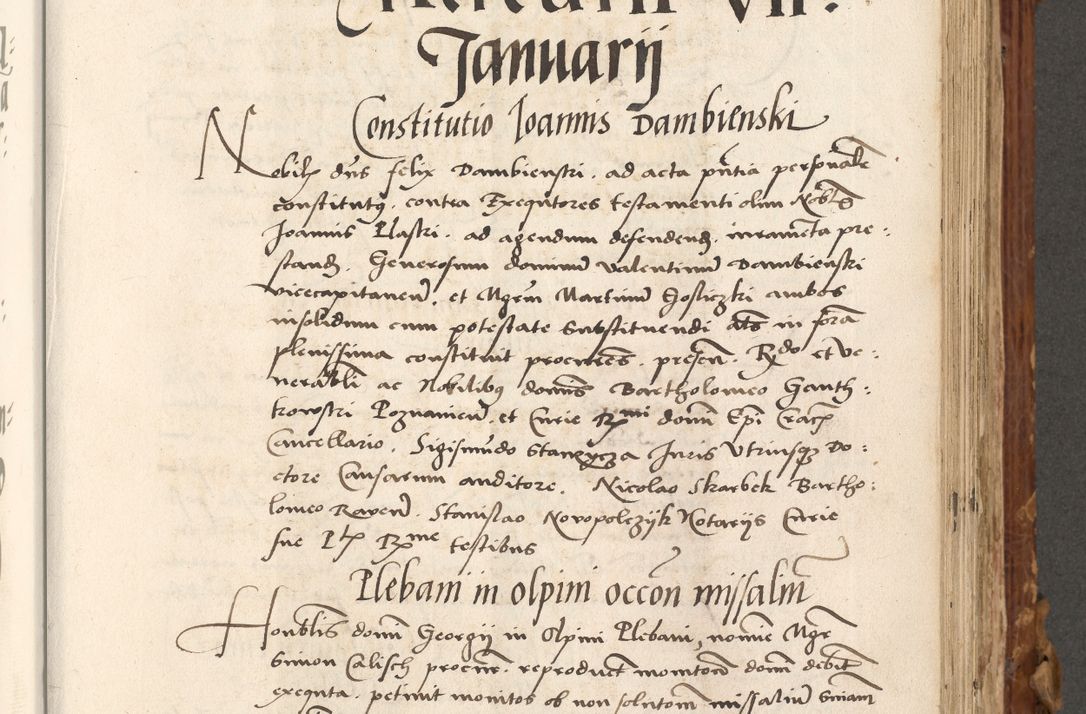 Januarij
Constitutio Joannis Dambienski
Nobilis dns felix Dambienski . ad acta pntia personale
constitutq . contra Exequtores testamenti olim Nobls
Joannis Plastri . ad agendum defendend . iuramenta pre :
stand . Generosum dominu Valentinu Dambienski
vicecapitaneu . et Mgrm Martinu Hosliczki ambos
insolidum cum potestate Substituendi ats in fora
plenissima constituit procures . presen . Rdo et Ve :
nerabli ac Nobilibus domis Bartholomeo Ganth :
kowski Poznanien . et Curie Rmi domi Epi Crac
Cancellario . Sigismudo Stanzycza Juris Utriusq Do :
ctore Causarum auditore . Nicolao Skarbek Bartho :
lomeo Raven . Stanislao Novopolczijk Notarijs Curie
sue Rme testibus
Plebani in olpini occon missaliu
Honblis domi Georgij in Olpini Plebani , nomine Mgr
Simon Calisch procur . reproduct monitoriu domi debite
exequta . petiuit monitos ob non solutom missaliu